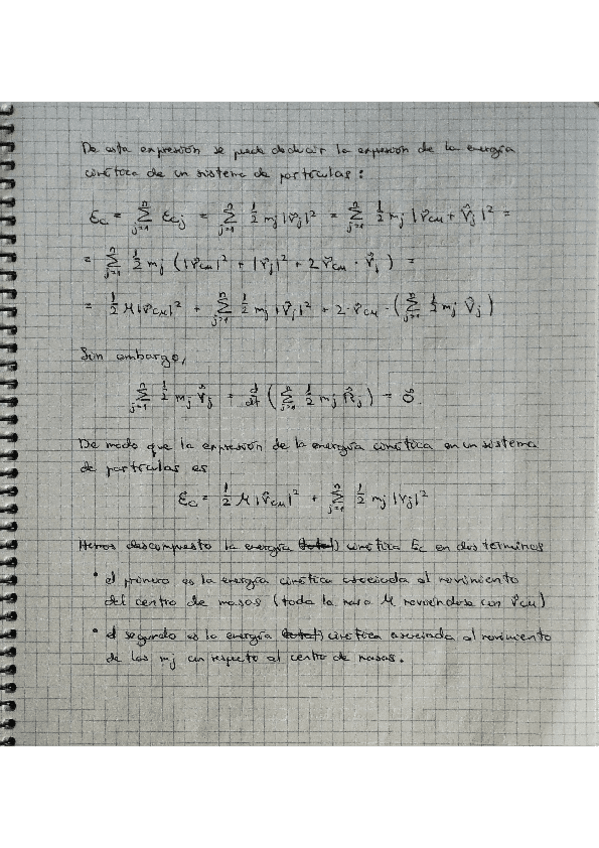 De esta expresión se puede deducir la expresión de la energía
cinética de un sistema de partículas:
Ec = Σ_{j=1}^{n} Ecj = Σ_{j=1}^{n} 1/2 mj |v⃗j|² = Σ_{j=1}^{n} 1/2 mj |v⃗CM + V⃗j|² =
= Σ_{j=1}^{n} 1/2 mj (|v⃗CM|² + |V⃗j|² + 2 v⃗CM · V⃗j) =
= 1/2 M |v⃗CM|² + Σ_{j=1}^{n} 1/2 mj |V⃗j|² + 2 · v⃗CM · (Σ_{j=1}^{n} 1/2 mj V⃗j)
Sin embargo,
Σ_{j=1}^{n} 1/2 mj V⃗j = d/dt (Σ_{j=1}^{n} 1/2 mj R⃗j) = 0⃗.
De modo que la expresión de la energía cinética en un sistema
de partículas es
Ec = 1/2 M |v⃗CM|² + Σ_{j=1}^{n} 1/2 mj |Vj|²
Hemos descompuesto la energía (total) cinética Ec en dos términos
• el primero es la energía cinética asociada al movimiento
del centro de masas (toda la masa M moviéndose con v⃗CM)
• el segundo es la energía (total) cinética asociada al movimiento
de las mj con respecto al centro de masas.